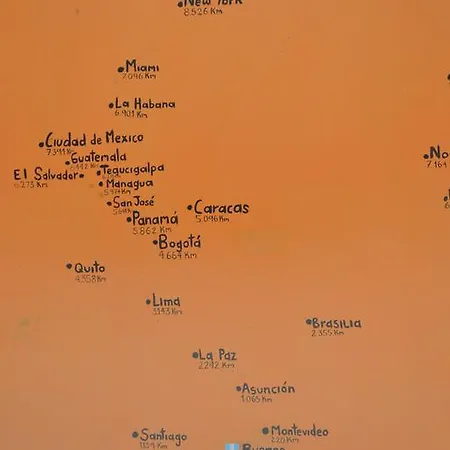 New York
8.526 Km
Miami
7.096 Km
La Habana
6.901 Km
Ciudad de Mexico
7.391 Km
Guatemala
Tegucigalpa
El Salvador
6273 Km
Managua
San José
Panamá
5.862 Km
Caracas
5.096 Km
Bogotá
4.667 Km
Quito
4.358 Km
Lima
3.143 Km
Brasilia
2.355 Km
La Paz
2.242 Km
Asunción
1.065 Km
Santiago
1.139 Km
Montevideo
220 Km
Buenos
No
7.164